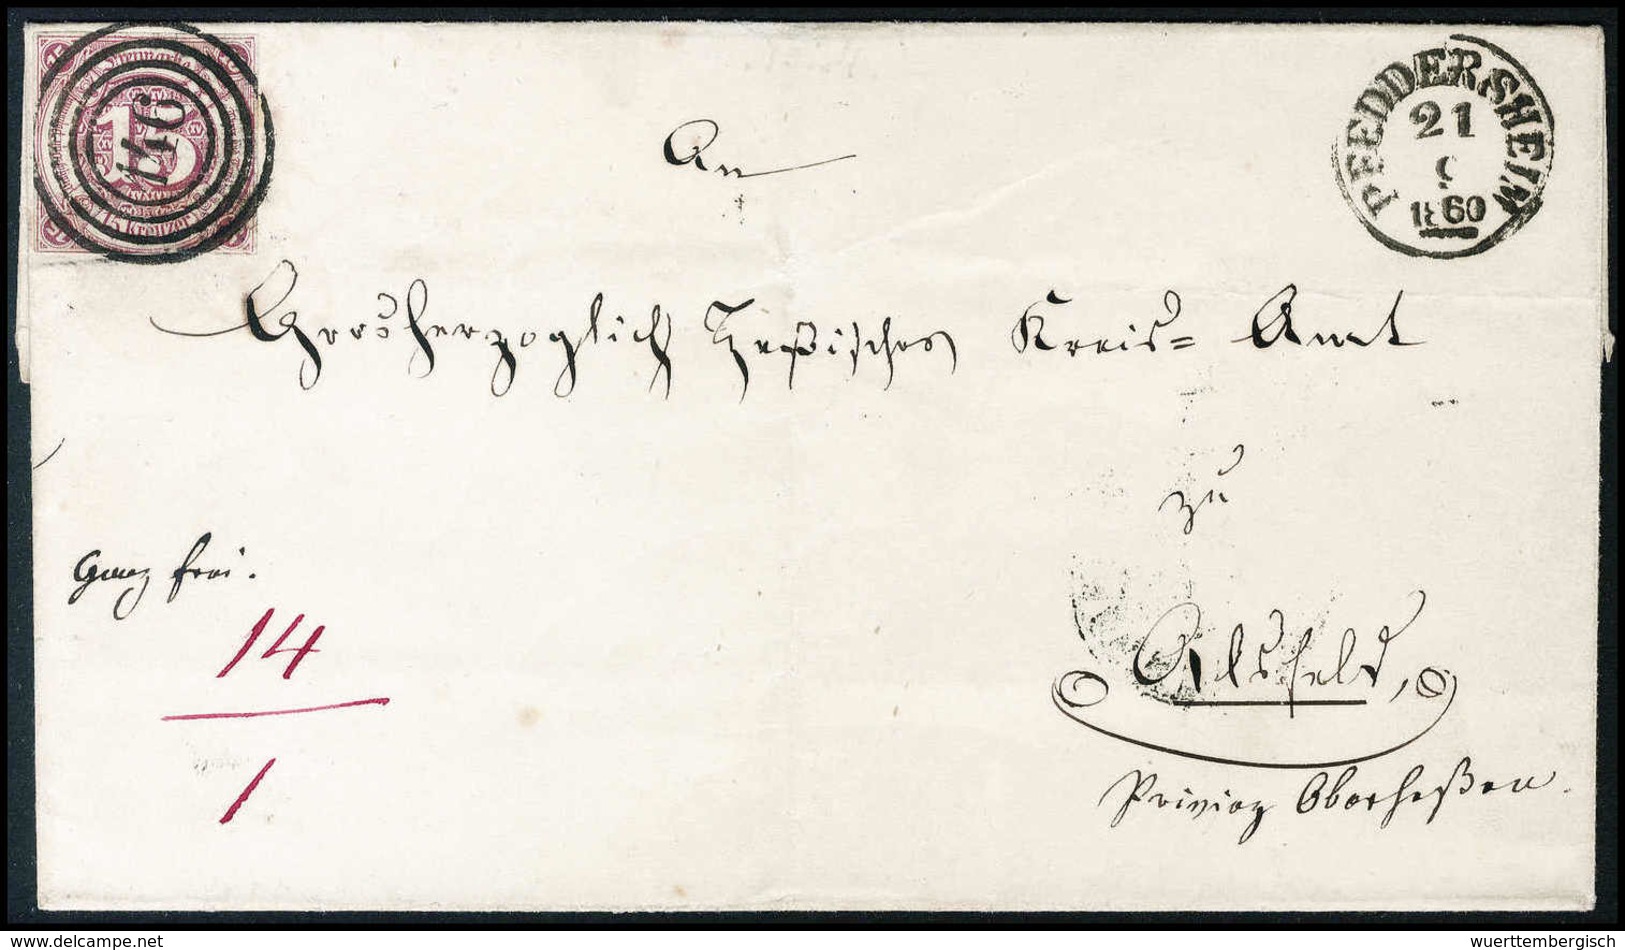 146
15
Kreuzer
PFEDDERSHEIM
21
9
1860
An
Grosherzoglich Heßisches Kreis= Amt
zu
Ganz frei.
14
1
Alsfeld,
Provinz Oberheßen.
© delcampe.net
wuerttembergisch